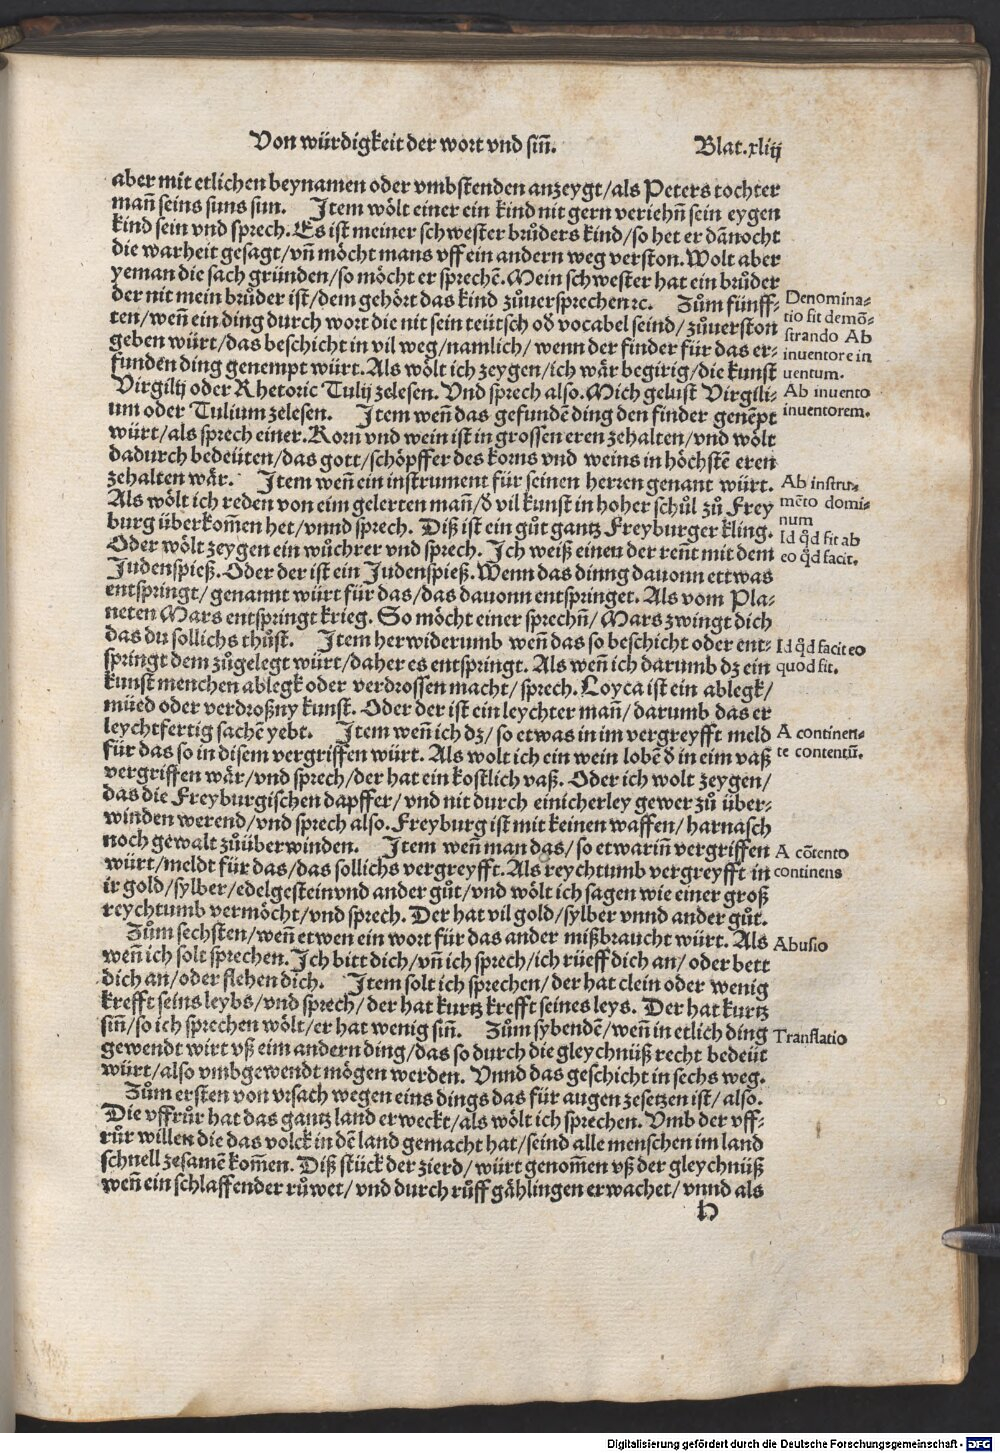 Von würdigkeit der wort vnd sin̄. Blat.xliij
aber mit etlichen beynamen oder vmbstenden anzeygt/als Peters tochter
man̄ seins suns sun. Item wölt einer ein kind nit gern veriehn̄ sein eygen
kind sein vnd sprech. Es ist meiner schwester brůders kind/so het er dānocht
die warheit gesagt/vn̄ möcht mans vff ein andern weg verston. Wolt aber
yeman die sach gründen/so möcht er sprechē. Mein schwester hat ein brůder
der nit mein brůder ist/dem gehört das kind zůuersprechen ꝛc. Zům fünff-
ten/wen̄ ein ding durch wort die nit sein teütsch od̄ vocabel seind/zůuerston
geben würt/das beschicht in vil weg/namlich/wenn der finder für das er-
funden ding genempt würt. Als wölt ich zeygen/ich wär begirig/die kunst
Virgilij oder Rhetoric Tulij zelesen. Vnd sprech also. Mich gelust Virgili-
um oder Tulium zelesen. Item wen̄ das gefundē ding den finder genēpt
würt/als sprech einer. Korn vnd wein ist in grossen eren zehalten/vnd wölt
dadurch bedeüten/das gott/schöpffer des korns vnd weins in höchstē eren
zehalten wär. Item wen̄ ein instrument für seinen herren genant würt.
Als wölt ich reden von eim gelerten man̄/d̄ vil kunst in hoher schůl zů Frey
burg überkom̄en het/vnnd sprech. Diß ist ein gůt gantz Freyburger kling.
Oder wölt zeygen ein wůchrer vnd sprech. Ich weiß einen der ren̄t mit dem
Judenspieß. Oder der ist ein Judenspieß. Wenn das dinng dauonn ettwas
entspringt/genannt würt für das/das dauonn entspringet. Als vom Pla-
neten Mars entspringt krieg. So möcht einer sprechn̄/Mars zwingt dich
das du sollichs thůst. Item herwiderumb wen̄ das so beschicht oder ent-
springt dem zůgelegt würt/daher es entspringt. Als wen̄ ich darumb dz ein
kunst menchen ablegk oder verdrossen macht/sprech. Loyca ist ein ablegk/
müed oder verdroßny kunst. Oder der ist ein leychter man̄/darumb das er
leychtfertig sachē yebt. Item wen̄ ich dz/so etwas in im vergreyfft meld
für das so in disem vergriffen würt. Als wolt ich ein wein lobē d̄ in eim vaß
vergriffen wär/vnd sprech/der hat ein kostlich vaß. Oder ich wolt zeygen/
das die Freyburgischen dapffer/vnd nit durch einicherley gewer zů über-
winden werend/vnd sprech also. Freyburg ist mit keinen waffen/harnasch
noch gewalt zůüberwinden. Item wen̄ man das/so etwarin̄ vergriffen
würt/meldt für das/das sollichs vergreyfft. Als reychtumb vergreyfft in
ir gold/sylber/edelgestein vnd ander gůt/vnd wölt ich sagen wie einer groß
reychtumb vermöcht/vnd sprech. Der hat vil gold/sylber vnnd ander gůt.
Zům sechsten/wen̄ etwen ein wort für das ander mißbraucht würt. Als
wen̄ ich solt sprechen. Ich bitt dich/vn̄ ich sprech/ich rüeff dich an/oder bett
dich an/oder flehen dich. Item solt ich sprechen/der hat clein oder wenig
krefft seins leybs/vnd sprech/der hat kurtz krefft seines leys. Der hat kurtz
sin̄/so ich sprechen wölt/er hat wenig sin̄. Zům sybendē/wen̄ in etlich ding
gewendt wirt vß eim andern ding/das so durch die gleychnüß recht bedeüt
würt/also vmbgewendt mögen werden. Vnnd das geschicht in sechs weg.
Zům ersten von vrsach wegen eins dings das für augen zesetzen ist/also.
Die vffrůr hat das gantz land erweckt/als wölt ich sprechen. Vmb der vff-
růr willen die das volck in dē land gemacht hat/seind alle menschen im land
schnell zesamē kom̄en. Diß stück der zierd/würt genom̄en vß der gleychnüß
wen̄ ein schlaffender růwet/vnd durch růff gählingen erwachet/vnnd als
h
Denomina-
tio fit demō-
strando Ab
inuentore in
uentum.
Ab inuento
inuentorem.
Ab instru-
mēto domi-
num
Id q̇d fit ab
eo q̇d facit.
Id q̇d facit eo
quod fit.
A continen-
te contentū.
A cōtento
continens
Abusio
Translatio
Digitalisierung gefördert durch die Deutsche Forschungsgemeinschaft - DFG